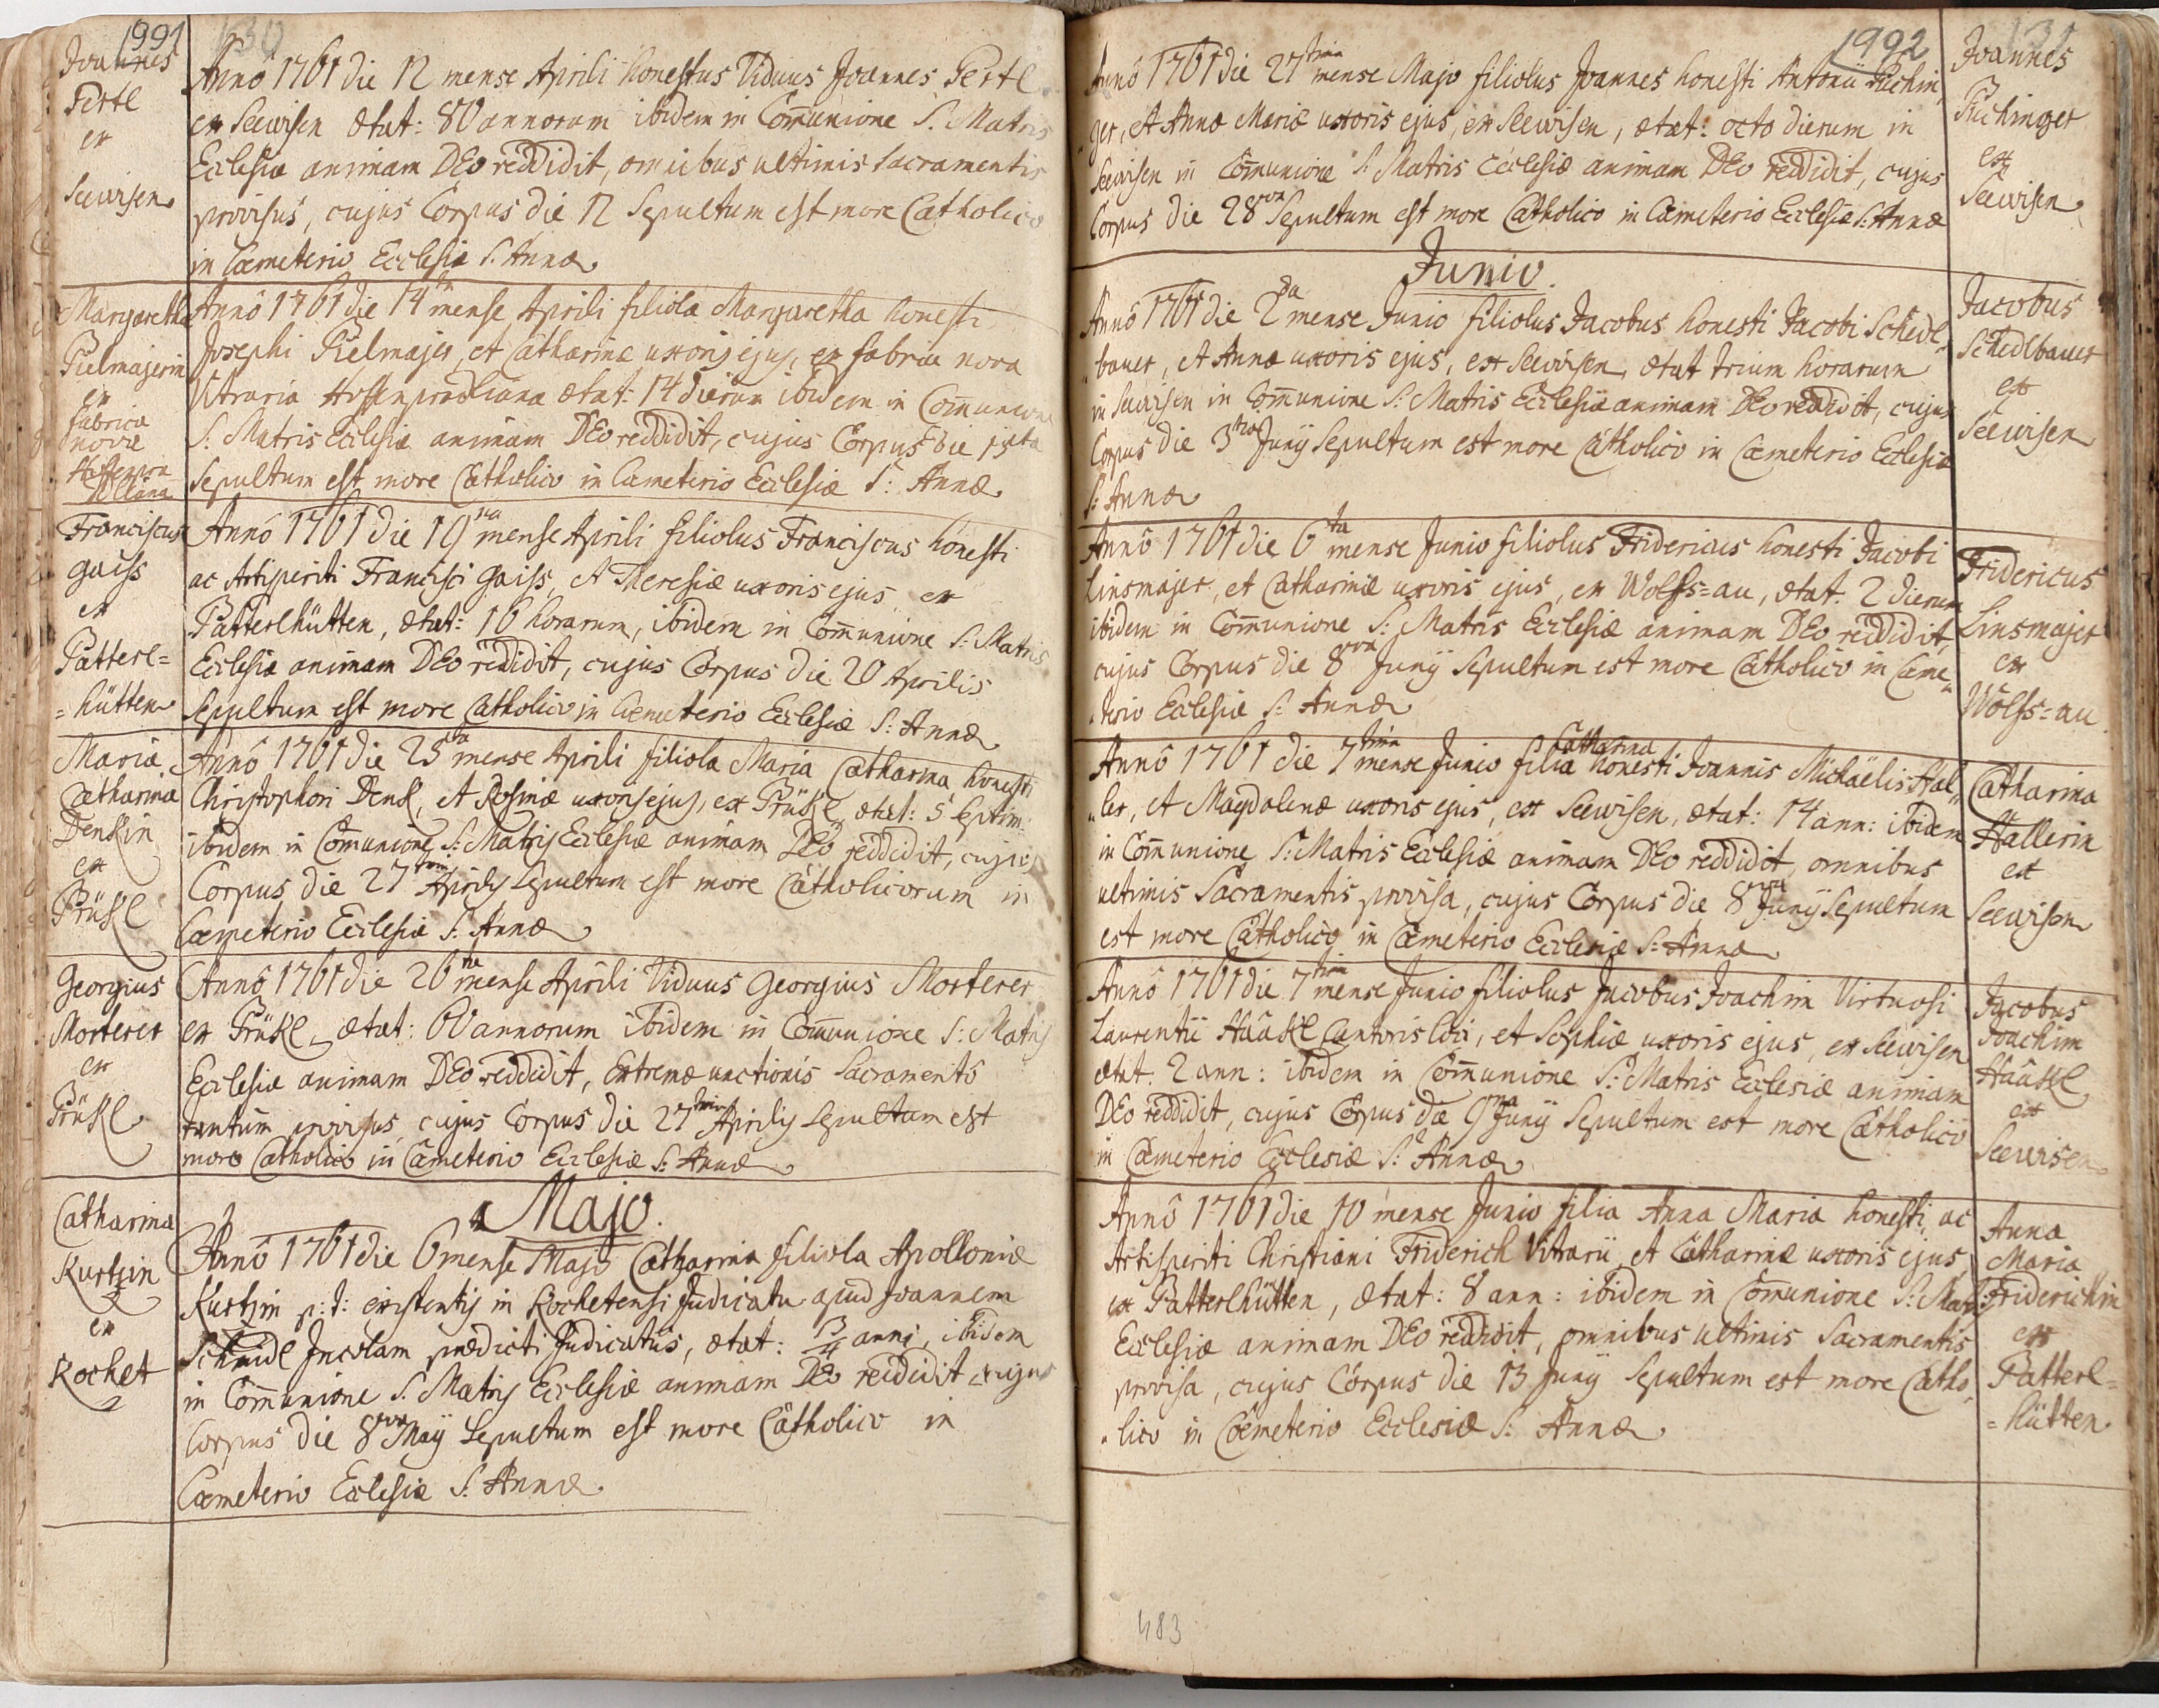 1991
130
Joannes
Pertl
ex
Seewisen
Annô 1761 die 12 mense Aprili honestus Viduus Joannes Pertl
ex Seewisen ætat: 80 annorum ibidem in Com̄unione S. Matris
Ecclesiæ animam DEo reddidit, omnibus ultimis sacramentis
provisus, cujus Corpus die 12 Sepultum est more Catholico
in Cœmeterio Ecclesiæ S. Annæ
Margaretha
Pielmajerin
ex
fabrica
novæ
Annô 1761 die 14 mense Aprili filiola Margaretha honesti
Josephi Pielmajer, et Catharinæ uxoris ejus, ex fabrica nova
Vitraria ætat: 14 dierum ibidem in Com̄unione
S. Matris Ecclesiæ animam DEo reddidit, cujus Corpus die 15ta
sepultum est more Catholico in Cœmeterio Ecclesiæ S: Annæ
Franciscus
gaiss
ex
Patterl=
=hütten
Annô 1761 die 19na mense Aprili filiolus Franciscus honesti
ac Artisperiti Francisci gaiss, et Theresiæ uxoris ejus ex
Patterlhütten, ætat: 16 horarum, ibidem in Com̄unione S: Matris
Ecclesiæ animam DEo reddidit, cujus Corpus die 20 Aprilis
Sepultum est more Catholico in Cœmeterio Ecclesiæ S: Annæ
Maria
Catharina
Denkin
ex
Prükl
Annô 1761 die 25ta mense Aprili filiola Maria Catharina honesti
Christophori Denk, et Rosinæ uxoris ejus, ex Prükl, ætat: 5 septim:
ibidem in Com̄unione S: Matris Ecclesiæ animam DEo reddidit, cujus
Corpus die 27tima Aprilis Sepultum est more Catholicorum in
Cœmeterio Ecclesiæ S: Annæ
Georgius
Morterer
ex
Prükl
Annô 1761 die 26ta mense Aprili Viduus Georgius Morterer
ex Prükl, ætat: 60 annorum ibidem in Com̄unione S: Matris
Ecclesiæ animam DEo reddidit, Extremæ unctionis Sacramentô
tantùm provisus, cujus Corpus die 27tima Aprilis Sepultum est
more Catholico in Cœmeterio Ecclesiæ S: Annæ
Majo.
Catharina
Kurtzin
ex
Rochet
Annô 1761 die 6 mense Majo Catharina filiola Apolloniæ
Kurtzin p: t: existentis in Rochetensi Judicatu apud Joannem
Schmidl Incolam prædicti Judicatûs, ætat: 3/4 anni, ibidem
in Com̄unione S. Matris Ecclesiæ animam DEo reddidit, cujus
Corpus die 8va Maÿ Sepultum est more Catholico in
Cœmeterio Ecclesiæ S: Annæ
1992
131
Annô 1761 die 27tima mense Majo filiolus Joannes honesti Antonii Puchin„
„ger, et Annæ Mariæ uxoris ejus, ex Seewisen, ætat: octo dierum in
Seewisen in Com̄unione S: Matris Ecclesiæ animam DEo reddidit, cujus
Corpus die 28va Sepultum est more Catholico in Cœmeterio Ecclesiæ S: Annæ
Joannes
Puchinger
ex
Seewisen
Junio.
Annô 1761 die 2da mense Junio filiolus Jacobus honesti Jacobi Schedl„
„bauer, et Annæ uxoris ejus, ex Seewisen, ætat trium horarum
in Seewisen in Com̄unione S: Matris Ecclesiæ animam DEo reddidit, cujus
Corpus die 3tia Junÿ Sepultum est more Catholico in Cœmeterio Ecclesiæ
S: Annæ
Jacobus
Schedlbauer
ex
Seewisen
Annô 1761 die 6ta mense Junio filiolus Fridericus honesti Jacobi
Linsmajer, et Catharinæ uxoris ejus, ex Wolfs=au, ætat: 2 dierum
ibidem in Com̄unione S: Matris Ecclesiæ animam DEo reddidit,
cujus Corpus die 8va Junÿ Sepultum est more Catholico in Cœme„
„terio Ecclesiæ S: Annæ
Fridericus
Linsmajer
ex
Wolfs=au
Annô 1761 die 7tima mense Junio filia Catharina honesti Joannis Michaëlis Hal„
„ler, et Magdalenæ uxoris ejus, ex Seewisen, ætat: 14 ann: ibidem
in Com̄unione S: Matris Ecclesiæ animam DEo reddidit, omnibus
ultimis Sacramentis provisa, cujus Corpus die 8va Junÿ Sepultum
est more Catholico in Cœmeterio Ecclesiæ S: Annæ
Catharina
Hallerin
ex
Seewisen
Annô 1761 die 7tima mense Junio filiolus Jacobus Joachim Virtuosi
Laurentii Haàkl Cantoris loci, et Sophiæ uxoris ejus, ex Seewisen
ætat. 2 ann: ibidem in Com̄unione S: Matris Ecclesiæ animam
DEo reddidit, cujus Corpus die 9na Junÿ Sepultum est more Catholico
in Cœmeterio Ecclesiæ S: Annæ
Jacobus
Joachim
Haàkl
ex
Seewisen
Annô 1761 die 10 mense Junio filia Anna Maria honesti, ac
Artisperiti Christiani Friderich Vitrarii, et Catharinæ uxoris ejus,
ex Patterlhütten, ætat: 8 ann: ibidem in Com̄unione S: Matr:
Ecclesiæ animam DEo reddidit, omnibus ultimis Sacramentis
provisa, cujus Corpus die 13 Junÿ Sepultum est more Catho„
„lico in Cœmeterio Ecclesiæ S: Annæ
Anna
Maria
Friderichin
ex
Patterl=
=hütten
483